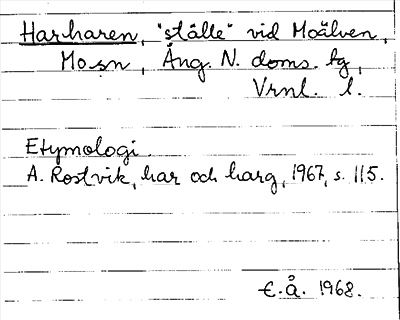 Harharen, "ställe" vid Moälven,
Mo sn, Ång. N. doms. fg,
Vrnl. l.
Etymologi.
A. Rostvik, har och harg, 1967, s. 115.
E.Å. 1968.